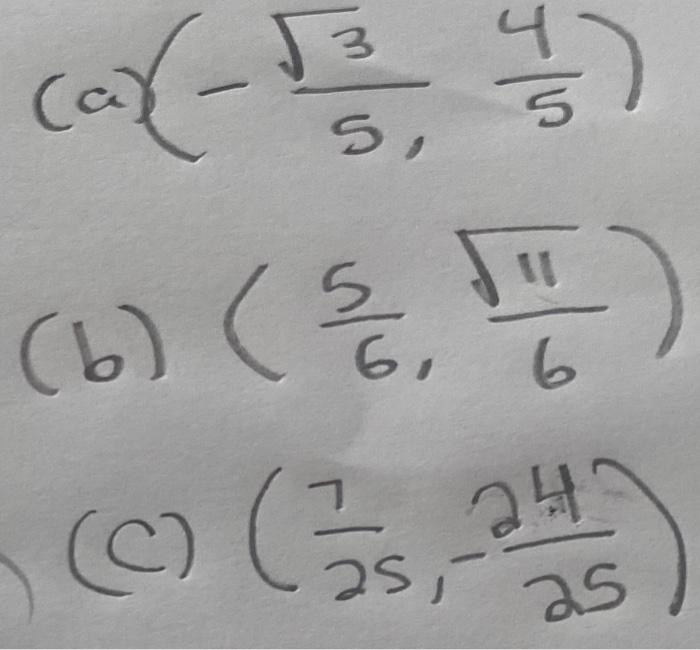 (a) (-√3/5, 4/5)
(b) (5/6, √11/6)
(c) (7/25, -24/25)